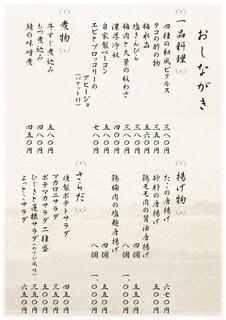 おしながき
一品料理
四種の和風ピクルス 三八〇円
タコの酢の物
梅水晶
塩きんぴら
梅肉と大葉の板わさ
濃厚冷奴
自家製ベーコン
エビとブロッコリーの
アヒージョ
(バケット付)
七八〇円
煮物
牛すじ煮込み 五八〇円
もつ煮込み 四五〇円
鯖の味噌煮 四五〇円
揚げ物
たこの唐揚げ 六七〇円
砂肝の唐揚げ 五五〇円
鶏モモ肉の醤油唐揚げ
四個 五五〇円
八個 一、〇〇〇円
鶏梅肉の塩麹唐揚げ
四個 五五〇円
八個 一、〇〇〇円
さらだ
燻製ポテトサラダ 四五〇円
マカロニサラダ 三五〇円
ポテマカサラダ二種盛 五五〇円
ひじきと蓮根サラダ(わさび風味) 三五〇円
よっとこサラダ 六五〇円